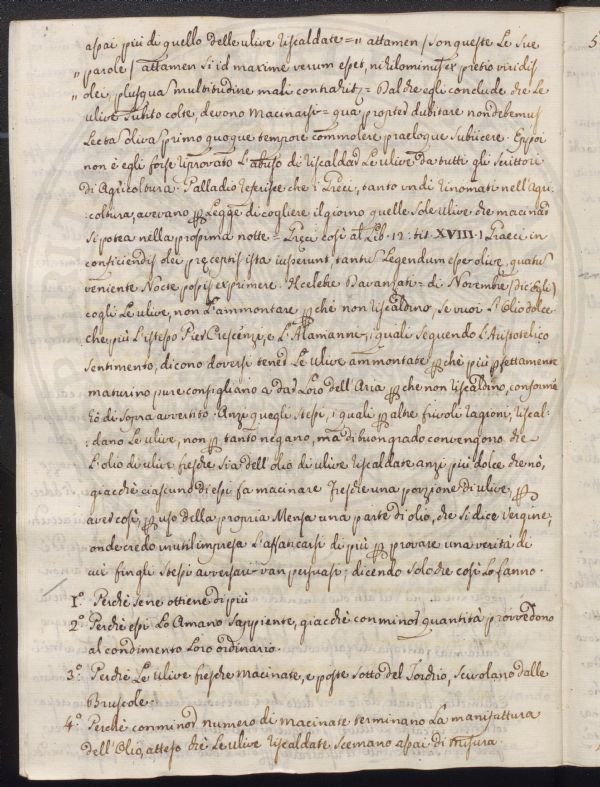 assai più di quello delle ulive riscaldate = „ attamen / son queste le sue
„ parole / attamen si id maxime verum esset, nihilominus ex pretio viridis
„ olei, plusquam multitudine mali contrahitur = Dal che egli conclude che le
ulive subito colte, devono macinarsi = qua propter dubitare non debemus
lectam olivam primo quoque tempore commolere praeloque subiicere. Eppoi
non è egli forse riprovato l'abuso di riscaldar le ulive da tutti gli scrittori
di Agricoltura. Palladio riferisce che i Greci, tanto un dì rinomati nell'agri:
:coltura, avevano per legge di cogliere il giorno quelle sole ulive che macinar
si potea nella prossima notte = Greci così al Lib. 12: tit XVIII. / Graeci in
conficiendis olei pręceptis ista iusserunt, tantum legendum esse olivę, quantum
veniente nocte possis exprimere. Il celebre Davanzati = di Novembre (dic'Egli)
cogli le ulive, non l'ammontare perchè non riscaldino, se vuoi l'Olio dolce.
che più l'istesso Pier Crescenzi, e l'Alamanni, i quali seguendo l'Aristotelico
sentimento, dicono doversi tener le ulive ammontate perchè più perfettamente
maturino pure consigliano a dar loro dell'Aria perchè non riscaldino, conforme
hò di sopra avvertito. Anzi quegli stessi, i quali per altre frivole ragioni, riscal:
:dano le ulive, non per tanto negano, ma di buon grado convengono che
l'olio di ulive fresche sia dell'olio di ulive riscaldate anzi più dolce che nò,
giacchè ciascuno di essi fa macinare fresche una porzione di ulive per
aver così, per uso della propria Mensa una parte di olio, che si dice vergine,
onde credo inutil impresa l'affaticarsi di più per provare una verità di
cui fin gli stessi avversari van persuasi; dicendo solo che così lo fanno.
1.º Perchè se ne ottiene di più
2.º Perchè essi lo amano sappiente, giacchè con minor quantità provvedono
al condimento loro ordinario.
3.º Perchè le ulive fresche macinate, e poste sotto del Torchio, scivolano dalle
Bruscole.
4.º Perchè con minor numero di macinate terminano la manifattura
dell'Olio, atteso chè le ulive riscaldate scemano assai di misura.